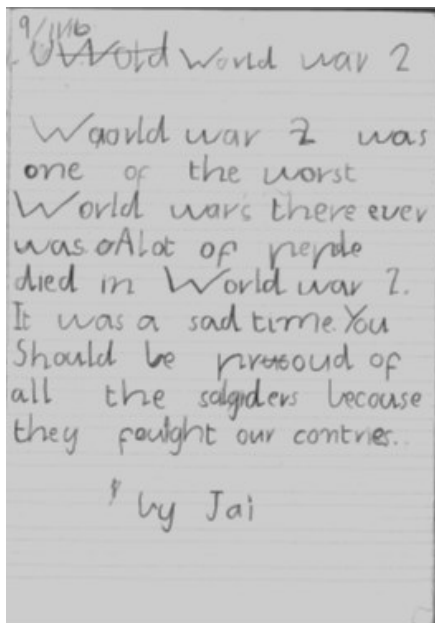 9/11/16
World World war 2
Waorld war 2 was
one of the worst
World wars there ever
was. A lot of peple
died in World war 2.
It was a sad time. You
Should be proud of
all the solgiders becouse
they fought our contries..
by Jai